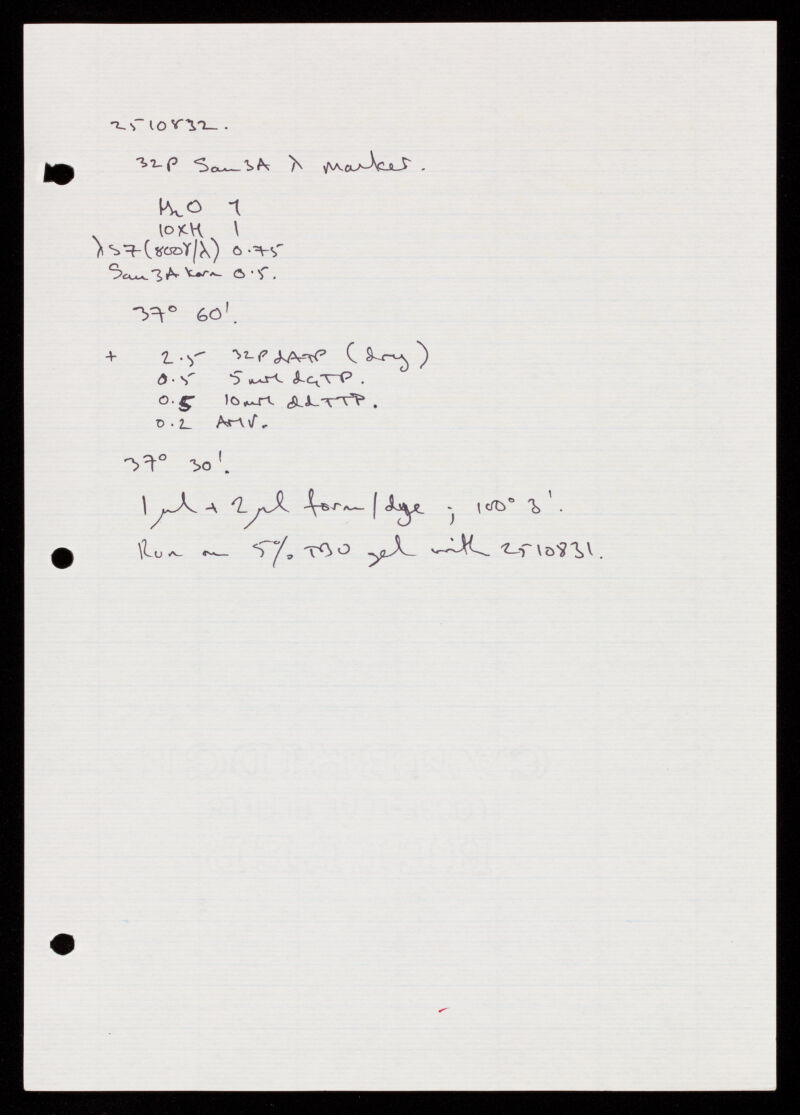 2510832.
32P Sau3A λ marker.
H2O 7
10XH 1
λS7(800γ/λ) 0.75
Sau3A 0.5.
37° 60'.
+ 2.5 32P dATP (dry)
0.5 5mM dGTP.
0.5 10mM ddTTP.
0.2 AMV.
37° 30'.
1μl + 2μl form/dye ; 100° 3'.
Run on 5% gel with 2510831.